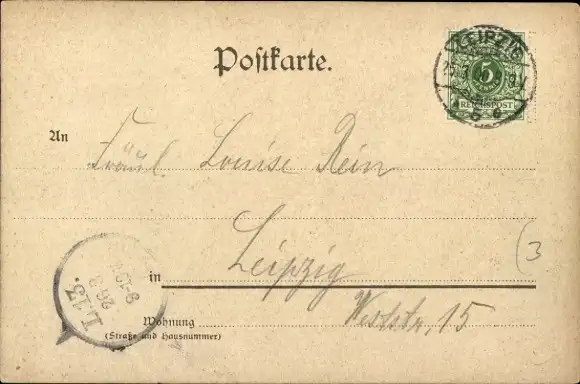 Postkarte.
LEIPZIG
5
REICHSPOST
5
An
Fräul. Louise Rein
(3
in Leipzig
L.13.
Wohnung Weststr. 15
(Straße und Hausnummer)